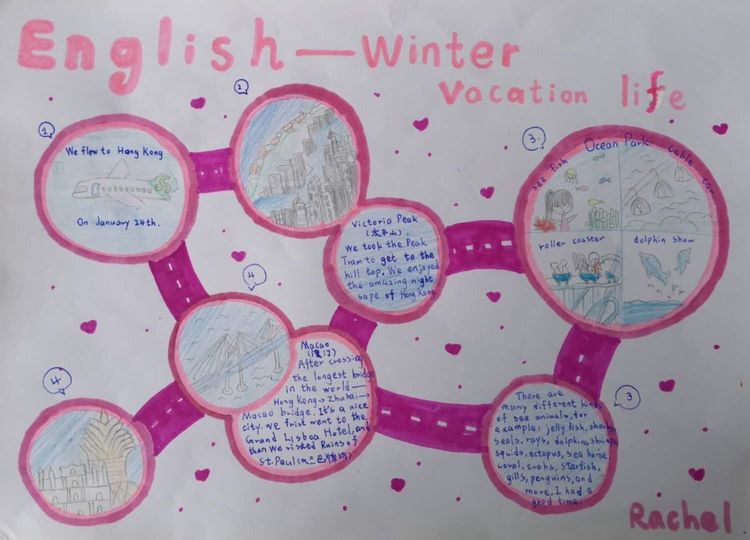 English—Winter
Vacation life
1
We flew to Hong Kong
On January 24th.
2
Victoria Peak
(太平山).
We took the Peak
Tram to get to the
hill top. We enjoyed
the amazing night
sape of Hong Kong.
3.
Ocean Park
see fish
cable car
roller coaster
dolphin show
4
Macao
(澳门)
After crossing
the longest bridge
in the world—
Hong Kong→Zhuhai→
Macao bridge. It's a nice
city. we frist went to the
Grand Lisboa Hotel, and
than We visited Rains of
St. Paul (大三巴牌坊)
4
3
There are
many different kinds
of sea animals, for
example: jelly fish, sharks
seals, rays, dolphins,
squids, octopus, sea horse,
coral, crabs, starfish,
gills, penguins, and
more. I had a
good time.
Rachel